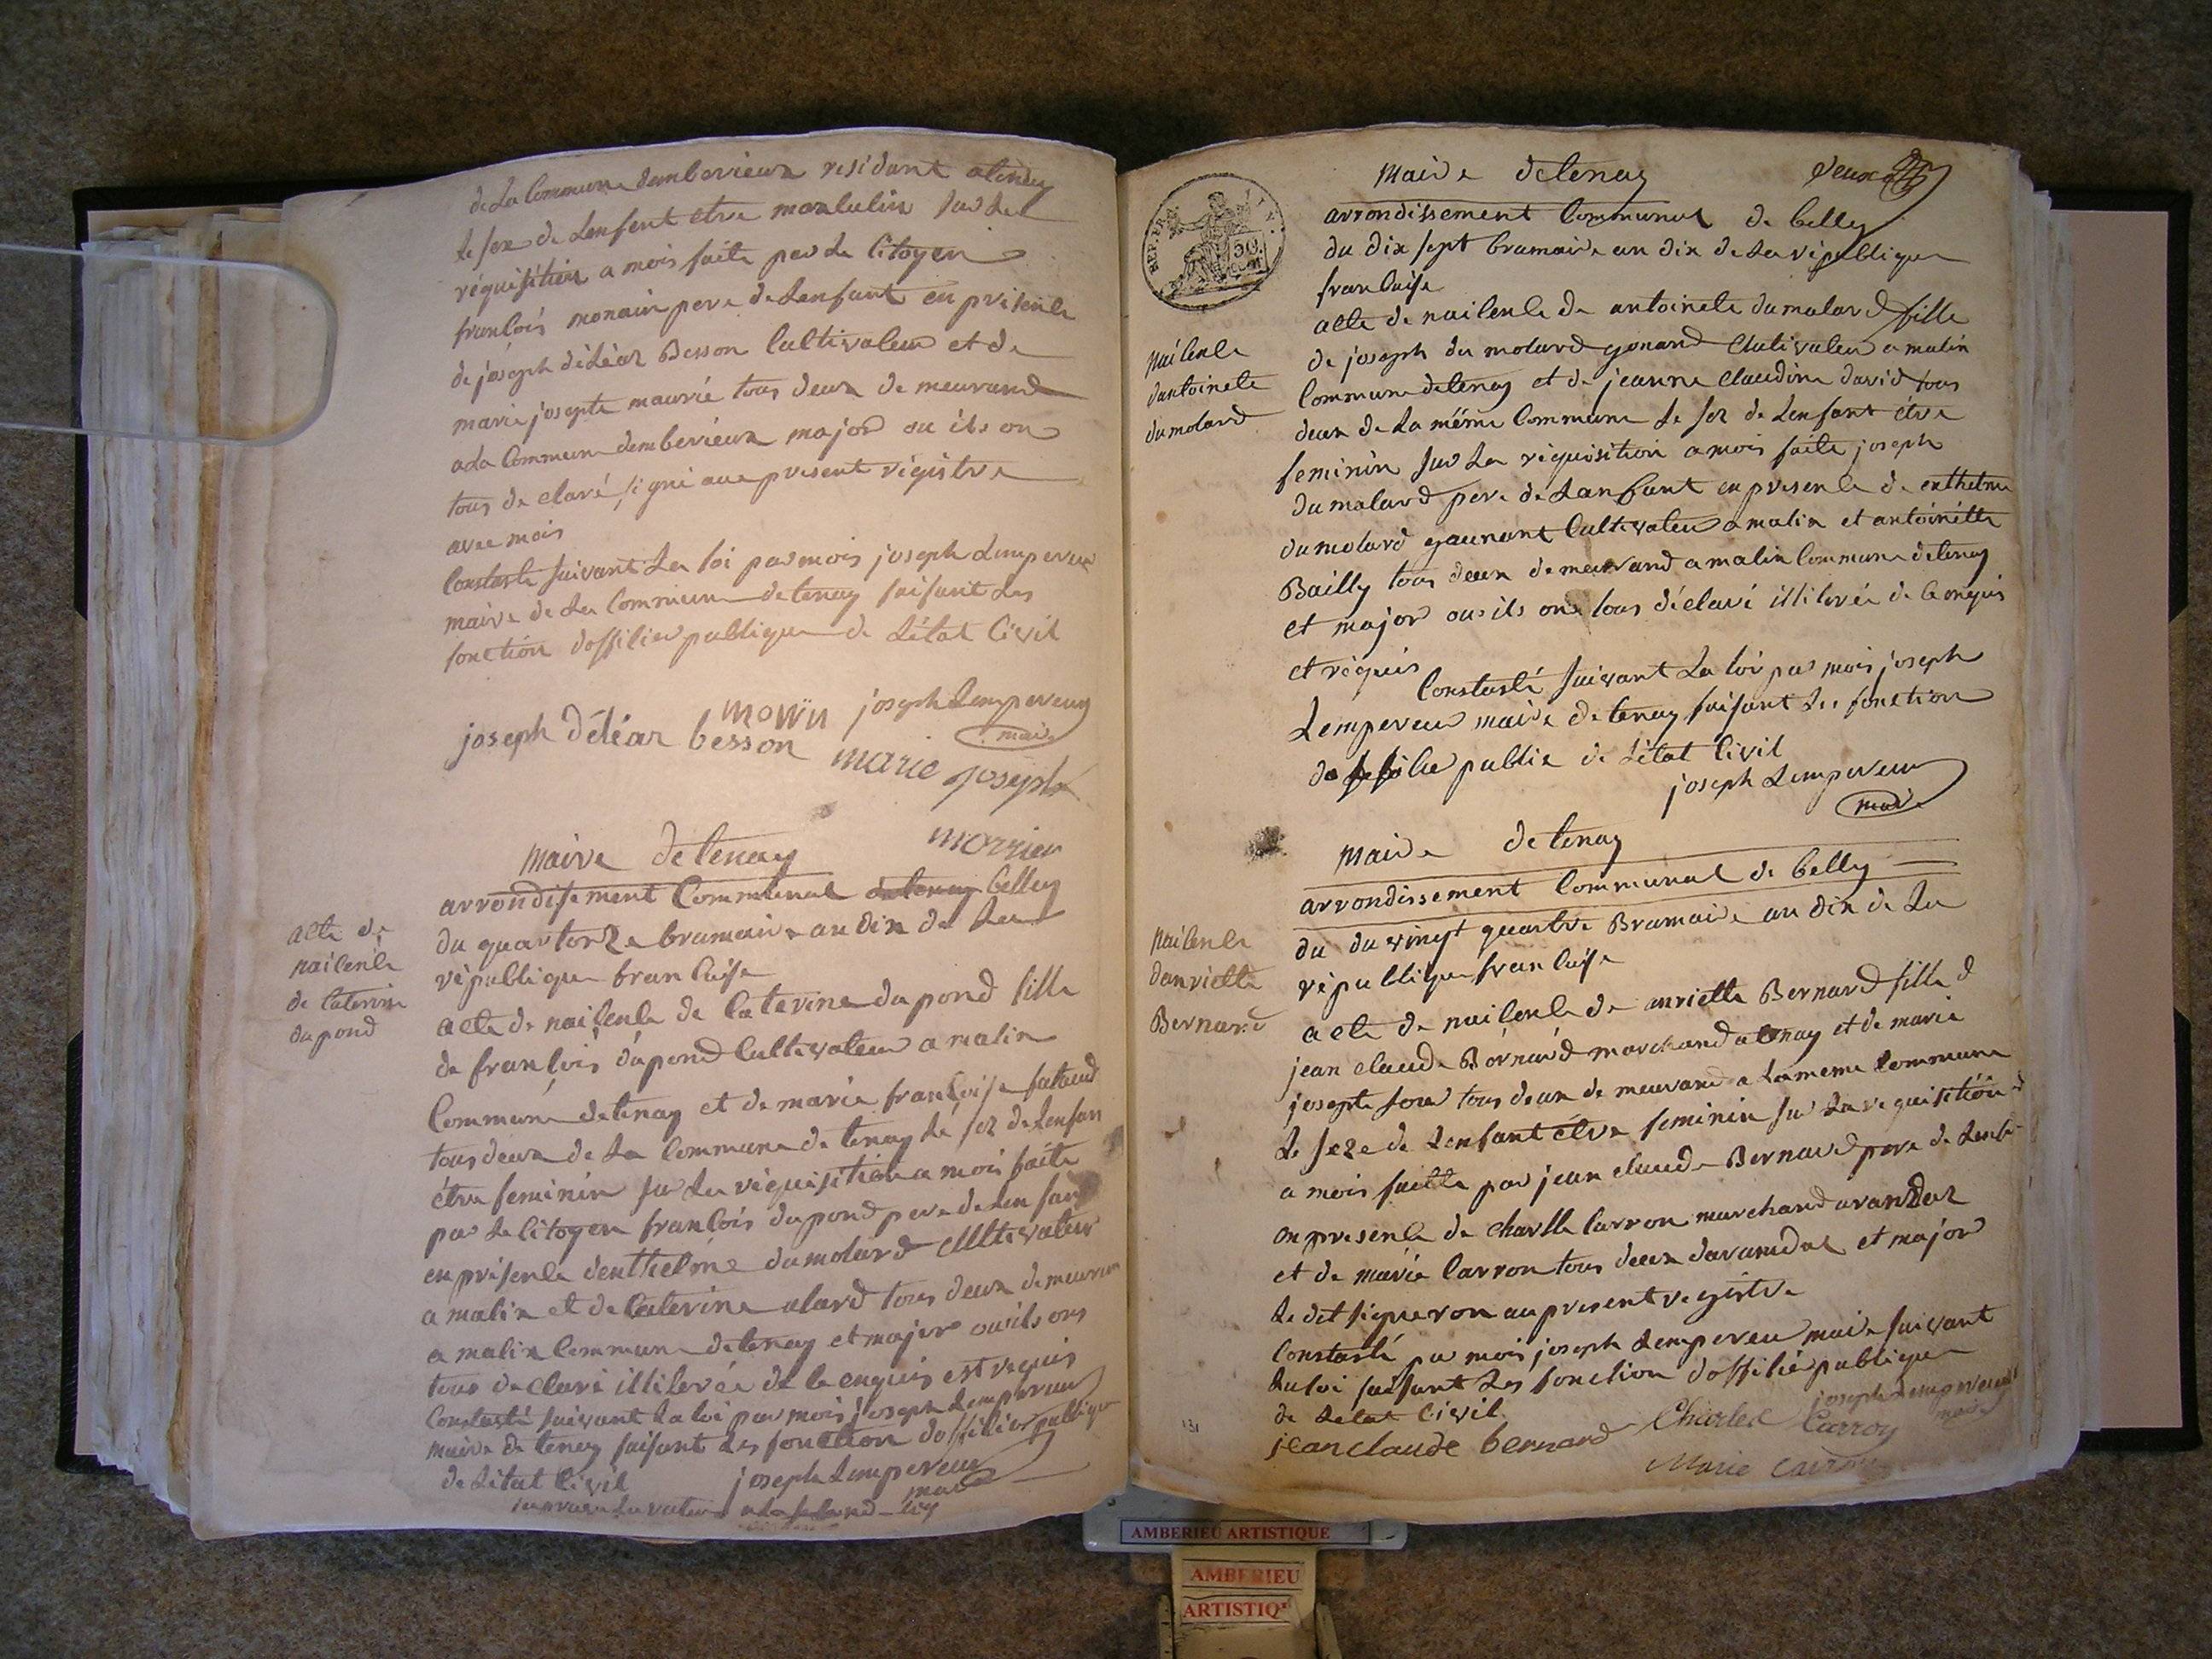 de La Commune demberieux residant a tenay
le sex de Lenfent etre masculin sur La
réquisition a mois faite par Le Citoyen
francois monain pere de Lenfant en présence
de joseph déléar Besson Cultivateur et de
marie josepte maurié tous deux de meurand
a La Commune demberieux major ou ils on
tous de claré signé aux present régistre
avec mois
Constaté suivant La loi par mois joseph Lempereur
maire de La Commune de tenay faisant Les
fonction dofficier publique de Létat Civil
joseph déléar besson
mowin
joseph Lempereur
maire
marie joseph
morrier
maire de tenay
arrondisement Communal belley
acte de
naicence
de caterine
dupond
du quartorze brumaire an dix de La
république francaise
acte de naicence de caterine dupond fille
de francois dupond Cultivateur a malix
Commune de tenay et de marie francoise
tous deux de La Commune de tenay Le sez de Lenfan
étre feminin su La réquisition a mois faite
par Le citoyen francois dupond pere de Lenfan
en présence denthelme dumolard Cultivateur
a malix et de Caterine alard tous deux demeuran
a malix Commune de tenay et major ou ils ons
tous declaré illiterée de ce enquis est requis
Constasté suivant La loi par mois joseph Lempereur
maire de tenay faisant Les fonction dofficier publique
de Létat Civil
joseph Lempereur
maire
deux
maire de tenay
arrondissement Communal de belley
du dix sept brumaire an dix de La république
francaise
REP. FRA
50
naicence
dantoinete
dumolard
acte de naicence de antoinete dumolard fille
de joseph du molard gonand Cultivateur a malix
Commune de tenay et de jeanne Claudine david tous
deux de La méme Commune Le sez de Lenfant étre
feminin sur La réquisition a mois faite joseph
dumolard pere de Lanfant en presence de enthelme
dumolard gaunant Cultivateur a malix et antoinette
Bailly tous deux demeurand a malix Commune de tenay
et major ou ils one tous déclaré illiterée de ce enquis
et réquis
Constasté suivant La loi par mois joseph
Lempereur maire de tenay faisant Les fonction
publix de Létat Civil
joseph Lempereur
maire
maire de tenay
arrondissement Communal de belley
naicence
danriette
Bernard
du du vingt quartre Brumaire an dix de La
république francaise
acte de naicence de anriette Bernard fille d
jean claude Bernard marchand a tenay et de marie
josepte tous deux de meurand a La meme Commune
Le seze de Lenfant étre feminin sur La requisition
a mois faitte par jean claude Bernard pere de Lenfe
en presence de Charlle Carron marchand arandaz
et de marie Carron tous deux darandaz et major
Le dit signeron au present registre
Constasté par mois joseph Lempereu maire suivant
La loi faisant Les fonction dofficié publique
de Létat Civil
joseph Lempereur
maire
jean claude bernard
Charles Carron
Marie carron
131
AMBERIEU ARTISTIQUE
AMBERIEU
ARTISTIQ